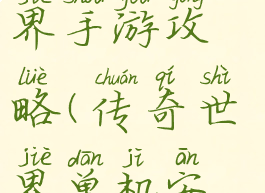 jiè shǒu yóu gōng
界手游攻
lüè chuán qí shì
略(传奇世
jiè dān jī ān
界单机安